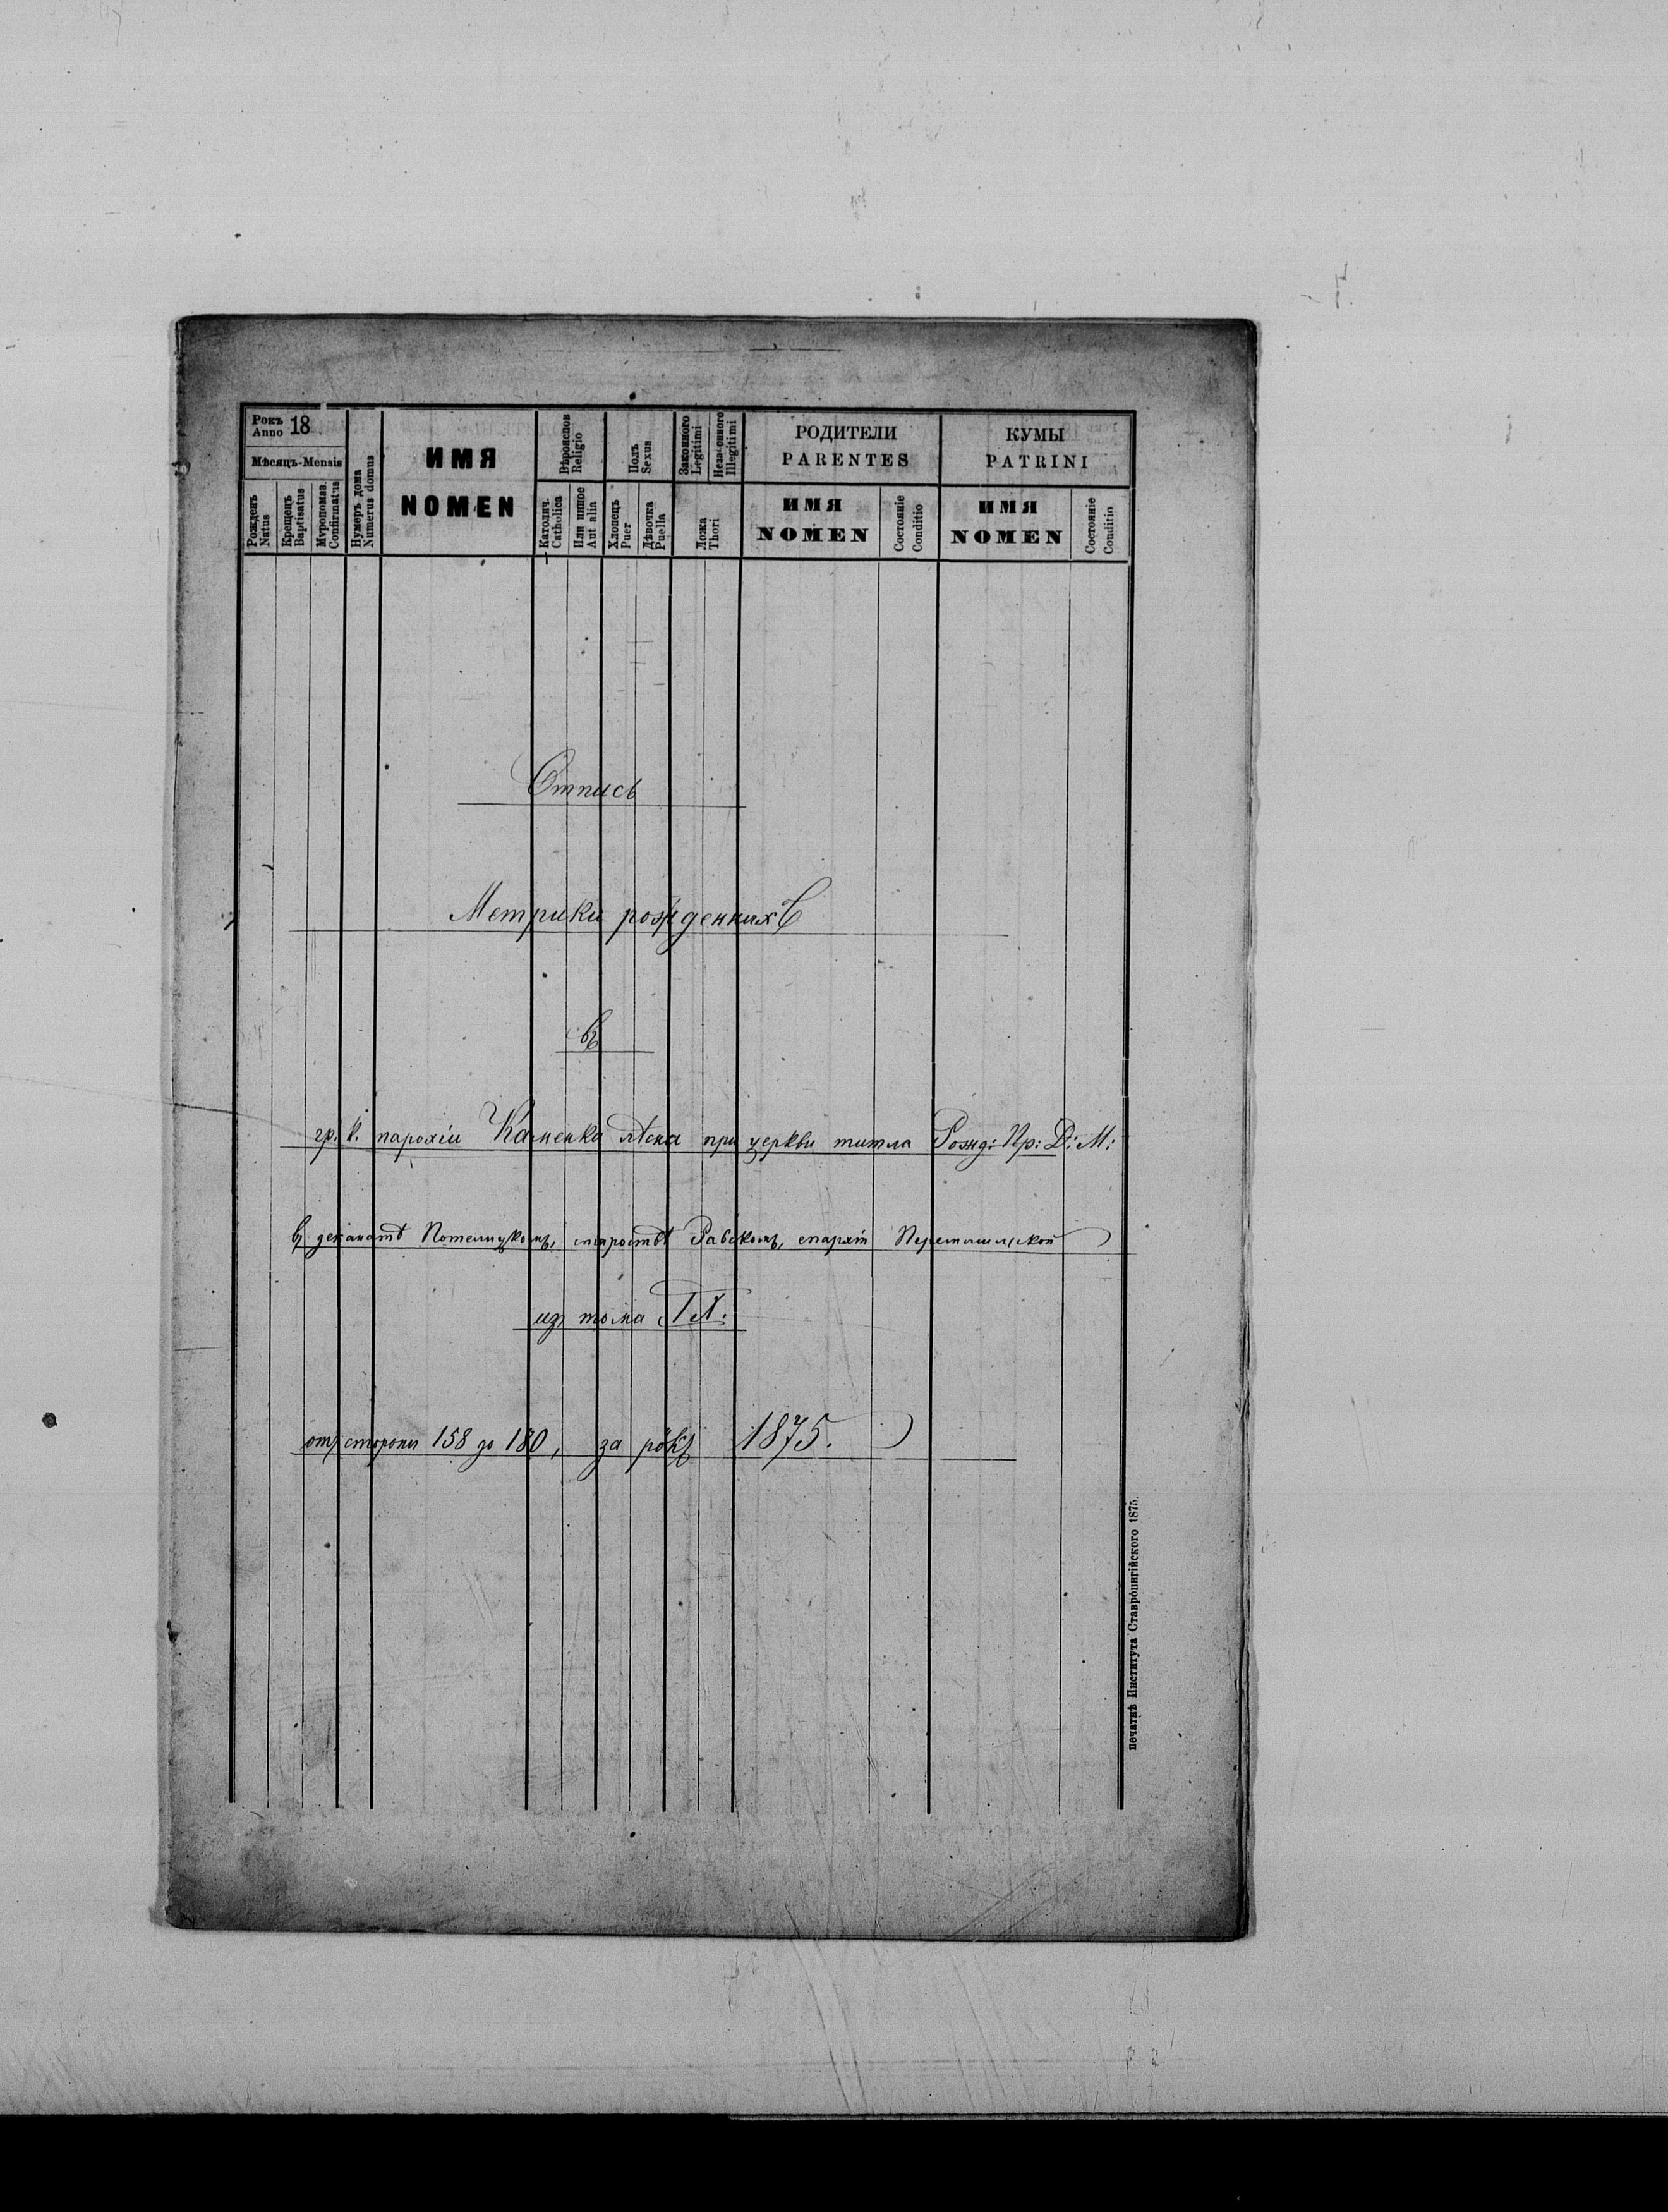 Рокъ 18
Anno
Мѣсяцъ-Mensis
Рожденъ
Natus
Крещенъ
Baptisatus
Мѵропомаз.
Confirmatus
Нумеръ дома
Numerus domus
ИМЯ
NOMEN
Вѣроисповѣ
Religio
Католич.
Catholica
Или иное
Aut alia
Полъ
Sexus
Хлопецъ
Puer
Дѣвочка
Puella
Законного
Legitimi
Незаконного
Illegitimi
Ложа
Thori
РОДИТЕЛИ
PARENTES
ИМЯ
NOMEN
Состояніе
Conditio
КУМЫ
PATRINI
ИМЯ
NOMEN
Состояніе
Conditio
Отпись
Метрики рожденнихъ
въ
гр. к. парохіи Каменка лѣсна при церкви титла Рожд: Пр: Д: М:
въ деканатѣ Потелицкомъ, староствѣ Равскомъ, епархіи Перемышльской
изъ тома
отъ стороны 158 до 180, за рокъ 1875.
печатнѣ Института Ставропигійского 1875.